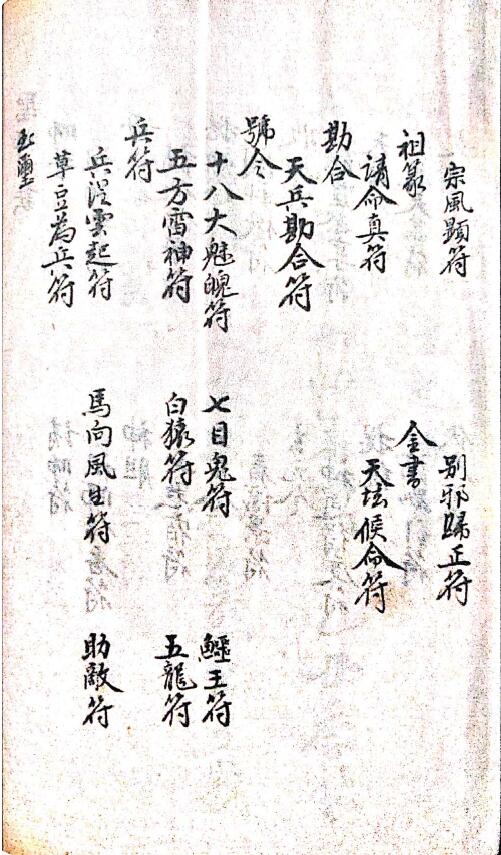 宗風顯符 別邪歸正符
祖篆 金書
請命真符 天坛候命符
勘合
天兵勘合符
號令
十八大魅魄符 七目鬼符 鱷王符
五方雷神符 白猿符 五龍符
兵符
兵從雲起符 馬向風生符 助敵符
草豆為兵符
玉璽